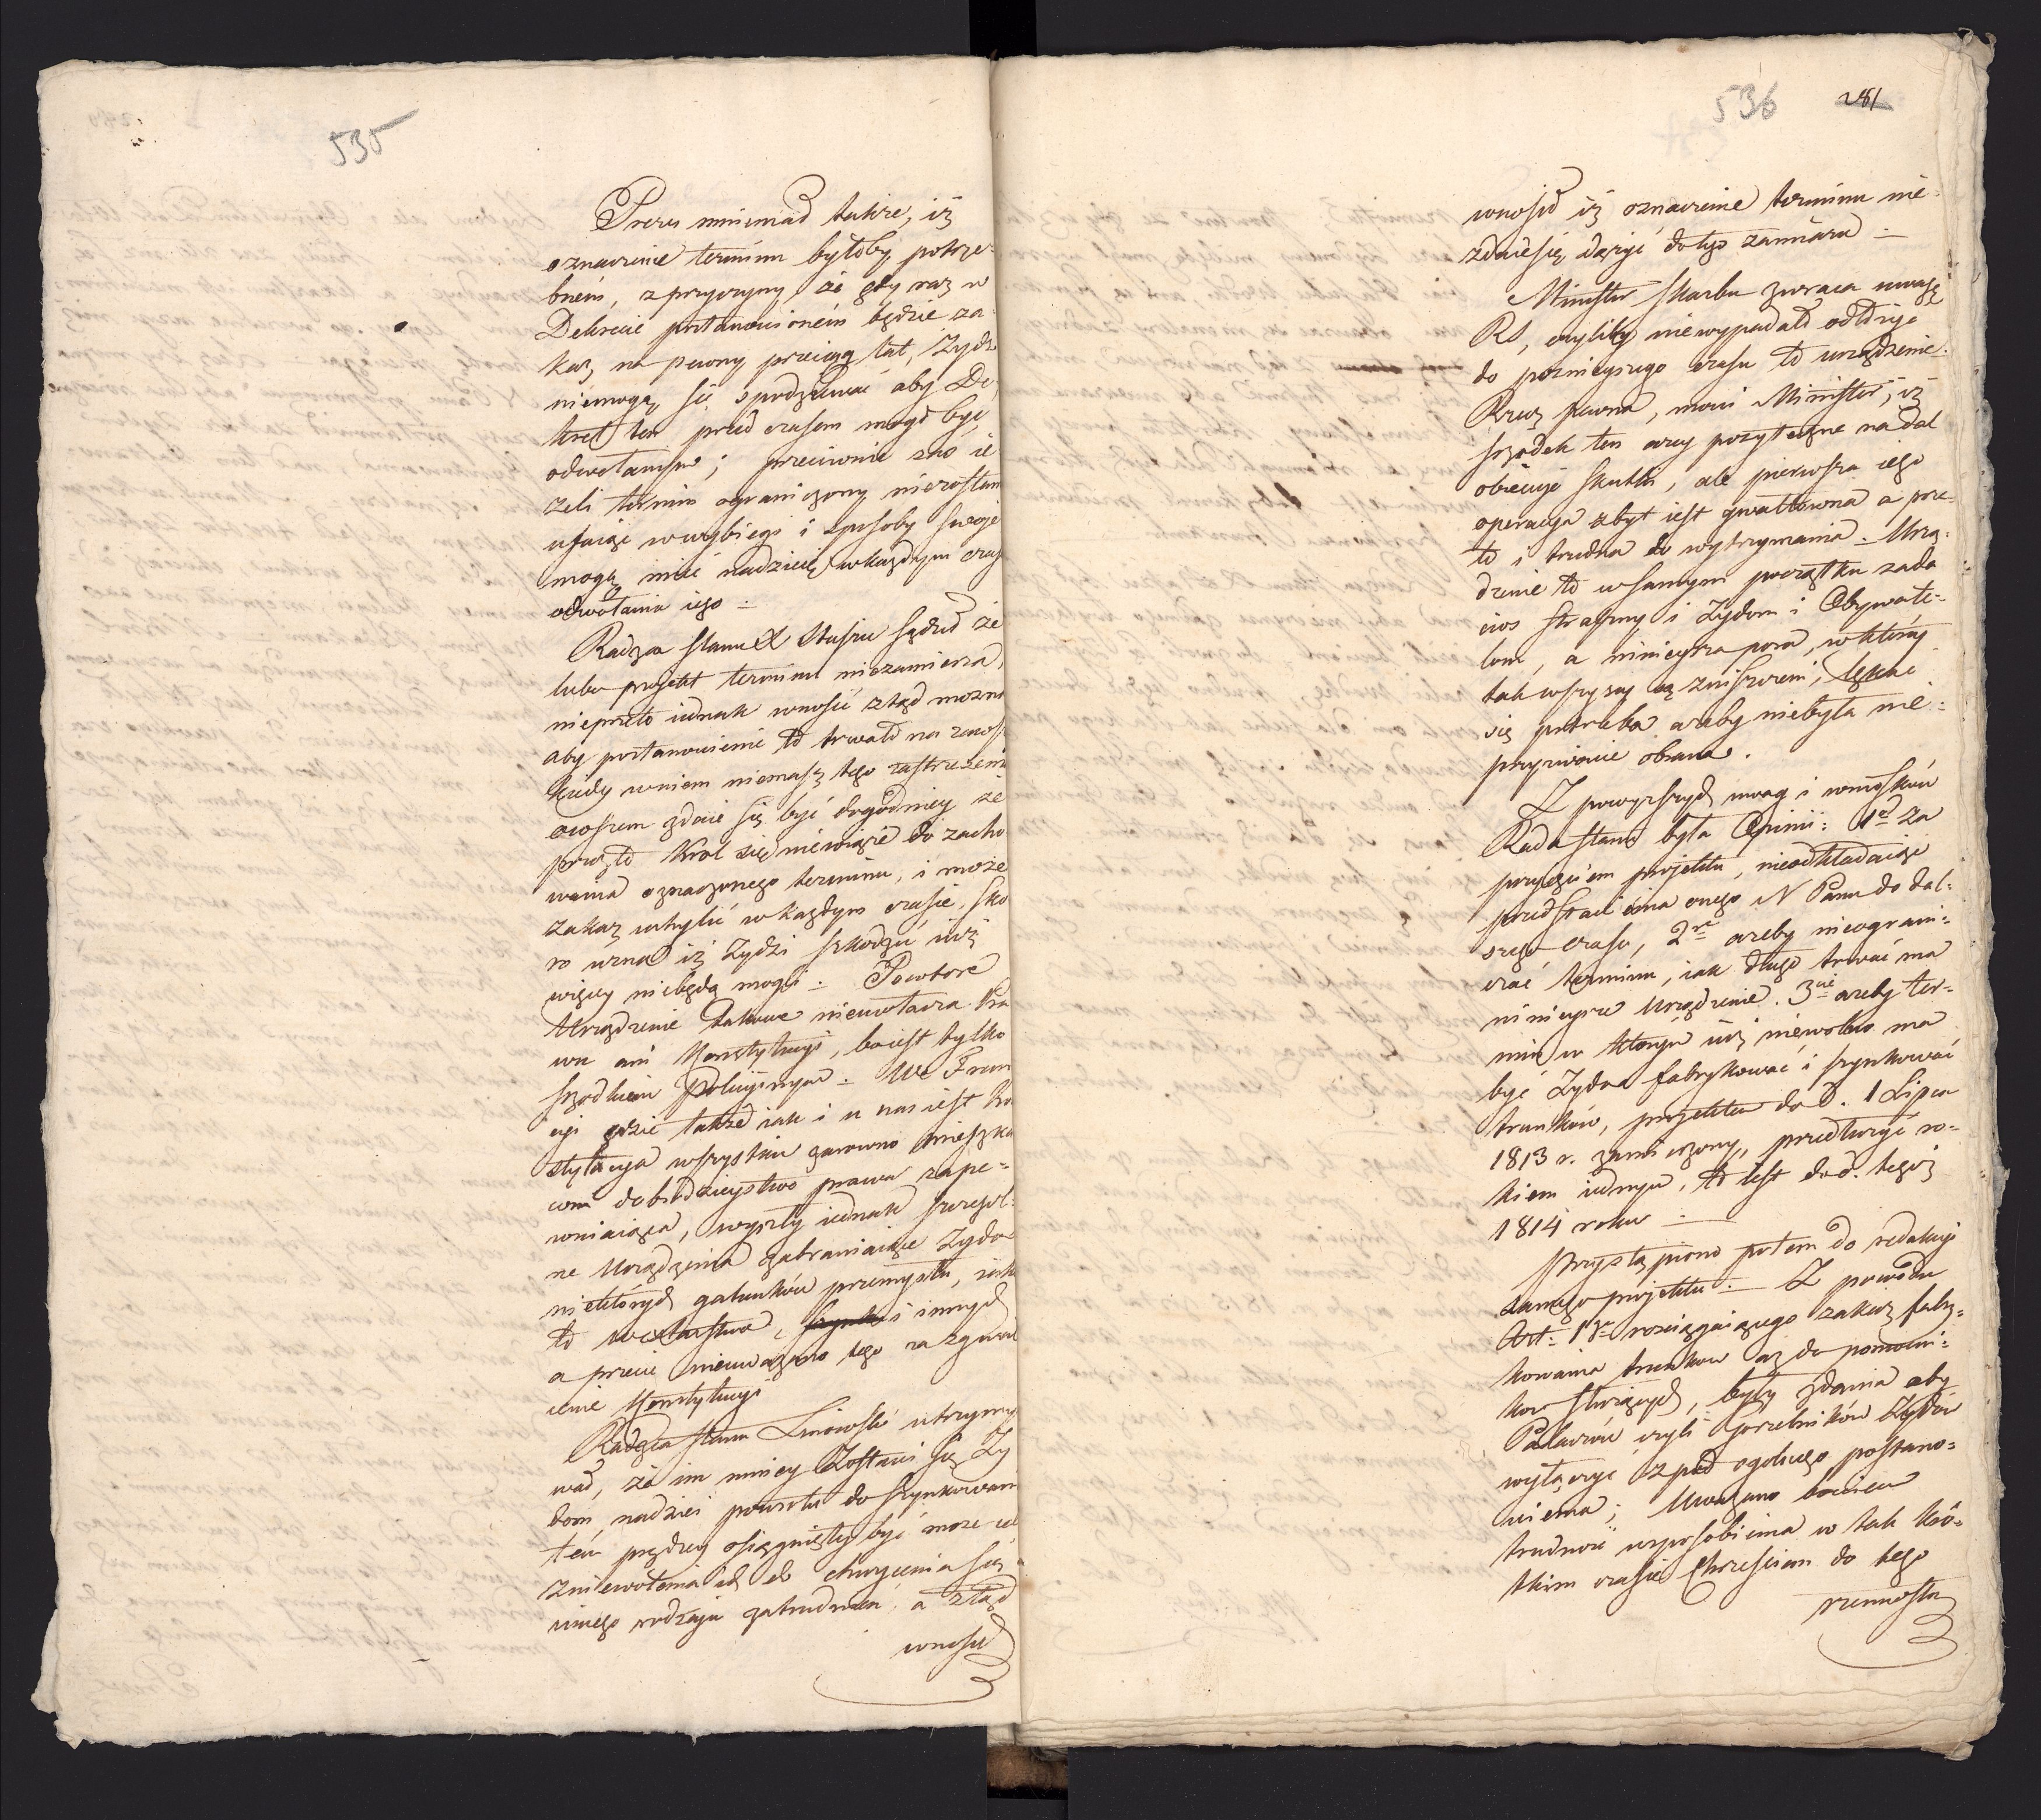 535
Prezes mniemał także, iż
oznaczenie terminu byłoby potrze-
bném, z przyczyny, że gdy raz w
Dekrecie postanowioném będzie za-
kaz na pewny przeciąg lat, Żydzi
niemogą się spodziewać aby De-
kret ten przed czasem mógł być
odwołanym; przeciwnie zaś ie
żeli termin ograniczony niezostanie
ufaiąc w wybiegi i sposoby swoje
mogą mieć nadzieię w każdym czas
odwołania iego.
Radzca Stanu Staszic sądził że
lubo projekt terminu niezamierza,
nieprzeto iednak wnosić ztąd można
aby postanowienie to trwało na zawsze
kiedy w niem niemasz tego zastrzeżenia
owszem zdaie się być dogodniey że
przez to Król się niewiąże do zacho-
wania oznaczonego terminu, i może
zakaz uchylić w każdym czasie, sko
ro uzna iż Żydzi szkodzić iuż
więcey niebędą mogli. Powtóre
Urządzenie takowe nieuwłacza Pra
wu ani Konstytucyi, bo iest tylko
szrodkiem Policyinym. We Fran
cyi gdzie także iak i u nas iest Kon
stytucya wszystkim zarówno mieszkań
com dobrodzieystwo prawa zape-
wniaiąca, wyszły iednak szczegól-
ne Urządzenia zabraniaiące Żydom
niektórych gatunków przemysłu, iako
to wexlarstwa, szynku i innych
a przecie nieuważano tego za zgwał
cenie Konstytucyi
Radzca Stanu Linowski utrzymy
wał, że im mniey zostawi się Ży
dom nadziei powrotu do szynkowania
tém prędzey osiągnięty być może cel
zniewolenia ich do chwycenia się
innego rodzaju zatrudnień, a ztąd
wnosił
536 281
wnosił iż oznaczenie terminu nie-
zdaie się dążyć do tego zamiaru.
Minister Skarbu zwraca uwagę
RS, czyliby niewypadało odłożyć
do poznieyszego czasu to urządzenie.
Rzecz pewna, mówi Minister, iż
srzodek ten arcy pożyteczne nadal
obiecuje skutki, ale pierwsza iego
operacya zbyt iest gwałtowna a prze-
to i trudna do wytrzymania. Urzą-
dzenie to w samym początku zada
cios straszny i Żydom i Obywate-
lom, a ninieysza pora, w którey
tak wszyscy są zniszczeni, lękać
się potrzeba ażeby niebyła nie-
przyzwoicie obrana.
Z powyższych uwag i wniosków
Rada Stanu była Opinii: 1d za
przyjęciem projektu, nieodkładaiąc
przedstawienia onego N Panu do dal-
szego czasu, 2re ażeby nieograni-
czać terminu, iak długo trwać ma
ninieysze Urządzenie. 3cie ażeby ter-
min w którym iuż niewolno ma
być Żydom fabrykować i szynkować
trunków, projektem do d. 1 Lipca
1813 r. zamierzony, przedłużyć ro-
kiem iednym, to iest do d. tegoż
1814 roku
Przystąpiono potem do redakcyi
samego projektu. Z powodu
Art: 1go rosciągaiącego zakaz fabry-
kowania trunków aż do pomocni-
ków służących, były zdania aby
Palaczów czyli Gorzelników Żydów
wyłączyć z pod ogólnego postano-
wienia; Uważano bowiem
trudność usposobienia w tak kró-
tkim czasie Chrześcian do tego
rzemiosła